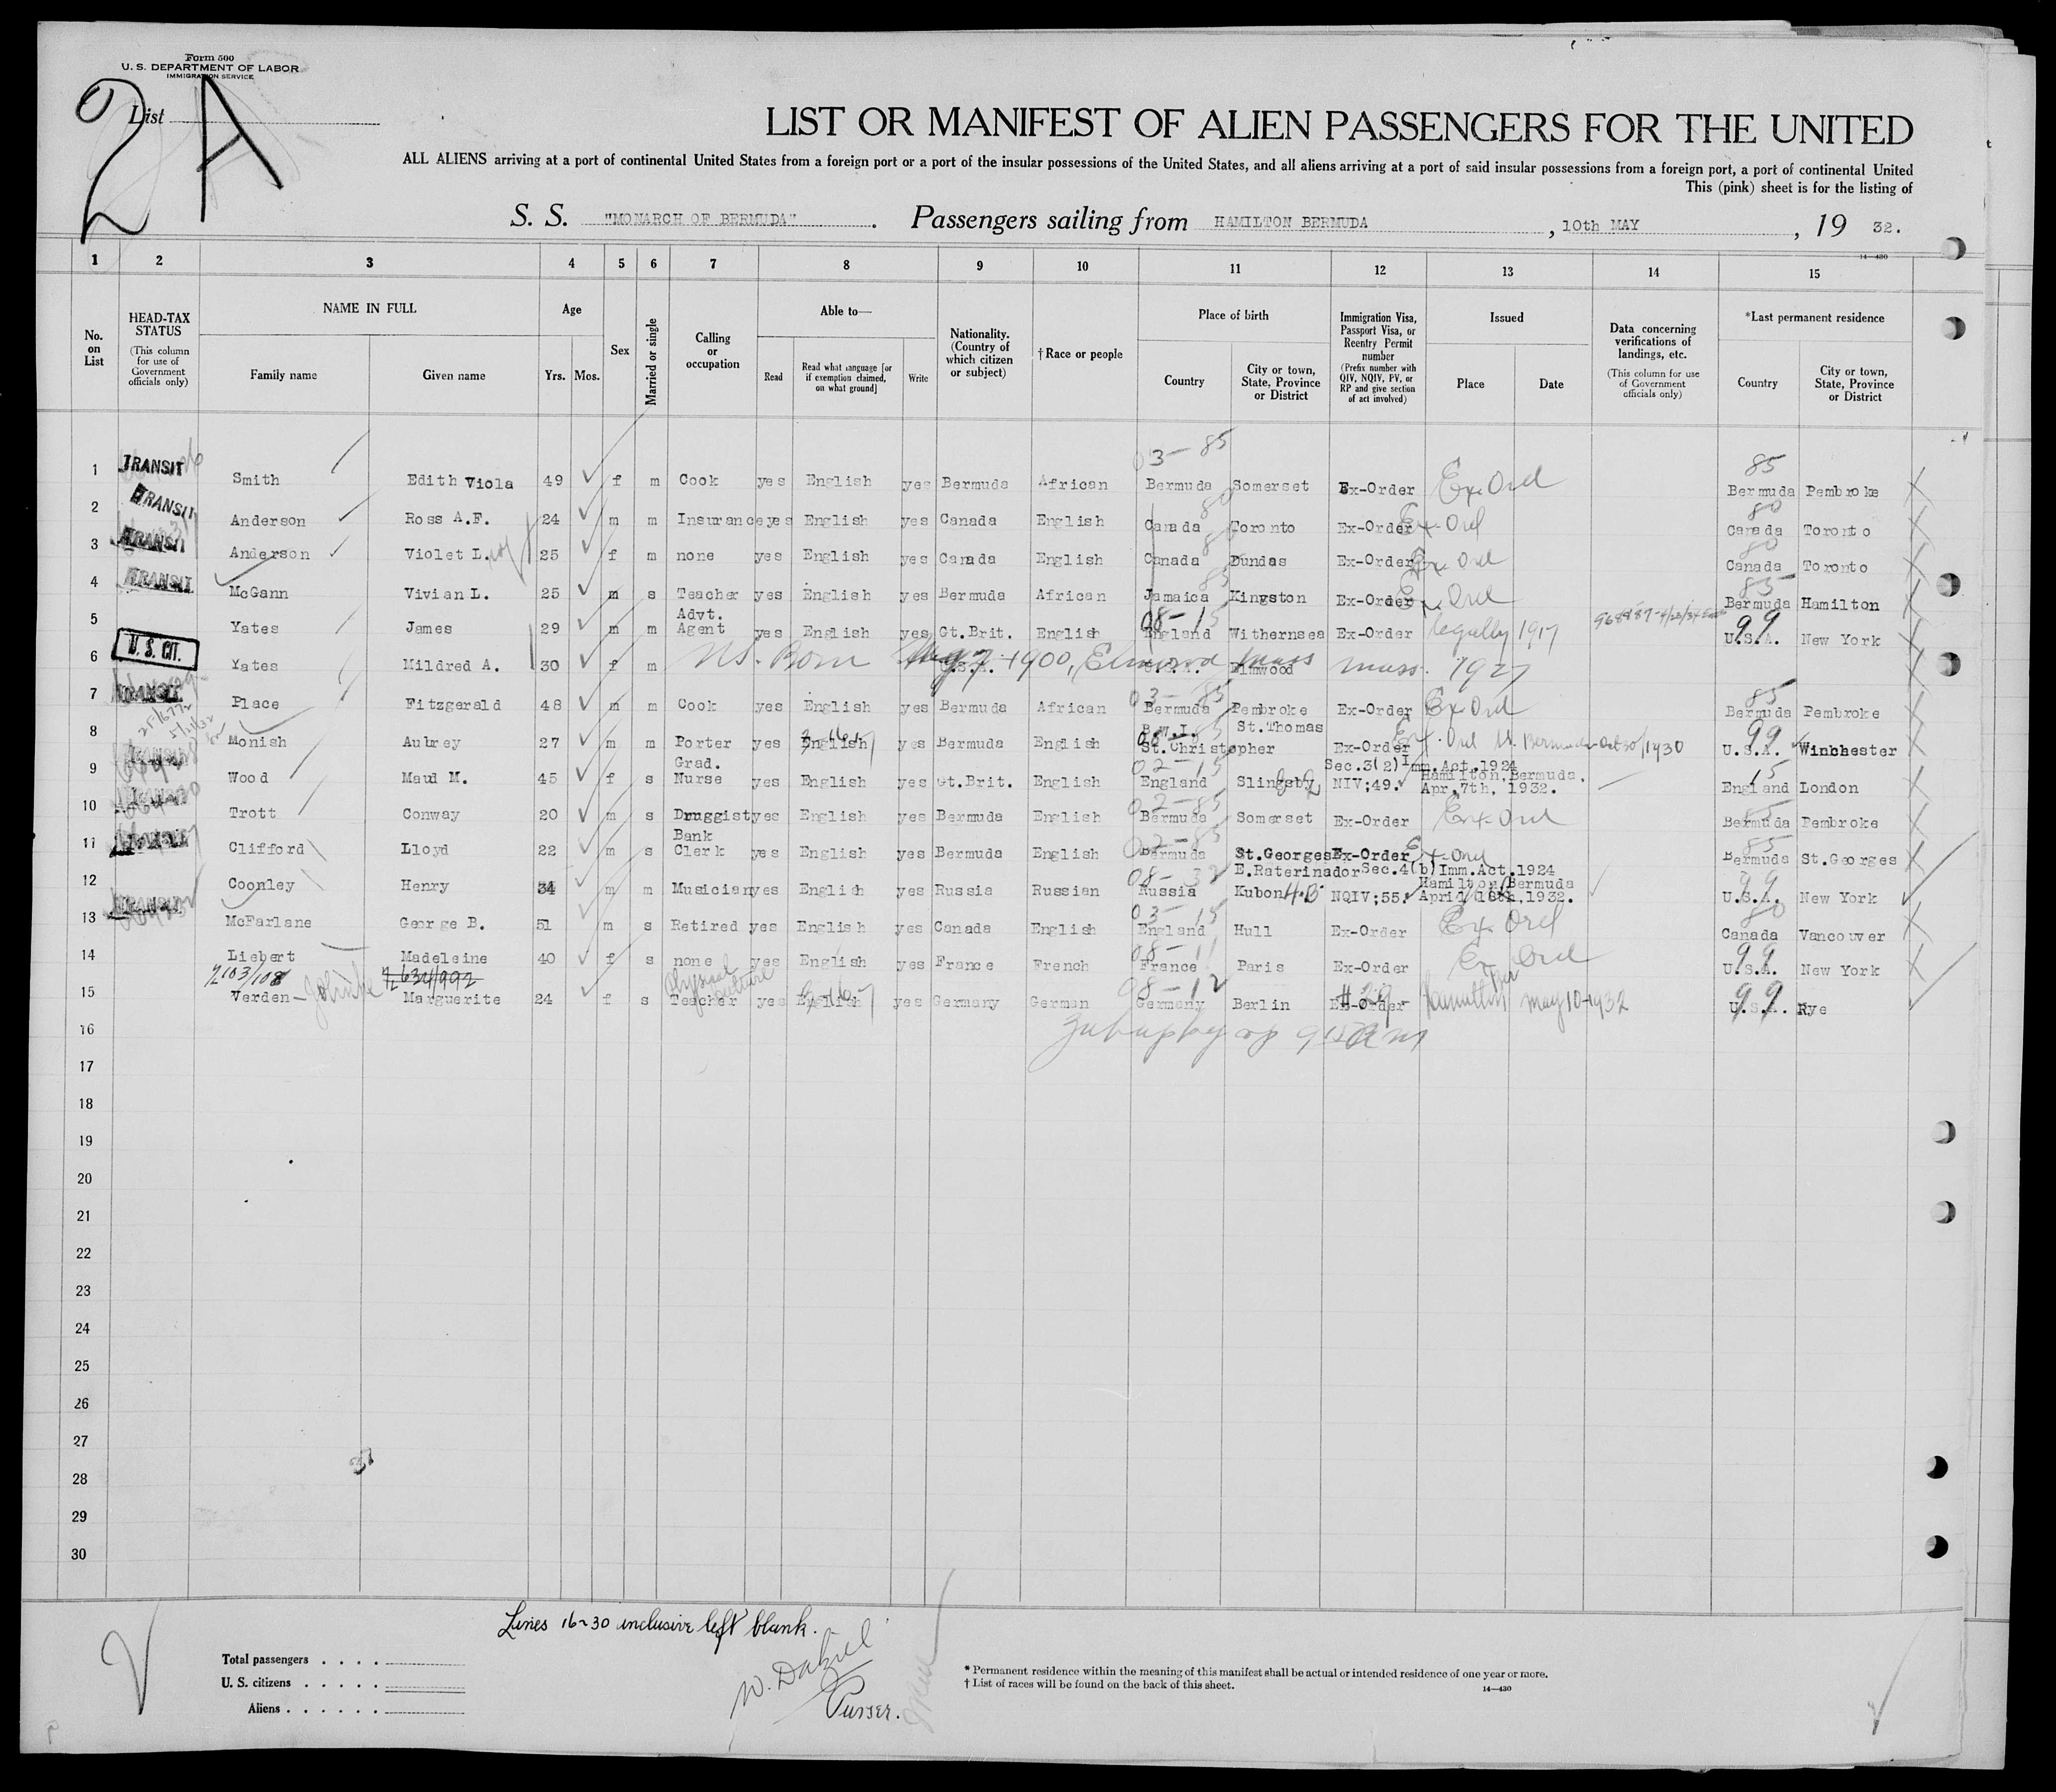 Form 500
U. S. DEPARTMENT OF LABOR
IMMIGRATION SERVICE
List
2 A
LIST OR MANIFEST OF ALIEN PASSENGERS FOR THE UNITED
ALL ALIENS arriving at a port of continental United States from a foreign port or a port of the insular possessions of the United States, and all aliens arriving at a port of said insular possessions from a foreign port, a port of continental United
This (pink) sheet is for the listing of
S. S. "MONARCH OF BERMUDA". Passengers sailing from HAMILTON BERMUDA, 10th MAY, 19 32.
14—430
1 2 3 4 5 6 7 8 9 10 11 12 13 14 15
No. on List
HEAD-TAX STATUS (This column for use of Government officials only)
NAME IN FULL
Family name Given name
Age Yrs. Mos.
Sex
Married or single
Calling or occupation
Able to—
Read Read what language [or if exemption claimed, on what ground] Write
Nationality. (Country of which citizen or subject)
†Race or people
Place of birth
Country City or town, State, Province or District
Immigration Visa, Passport Visa, or Reentry Permit number (Prefix number with QIV, NQIV, PV, or RP and give section of act involved)
Issued
Place Date
Data concerning verifications of landings, etc. (This column for use of Government officials only)
*Last permanent residence
Country City or town, State, Province or District
03-85 85
1 TRANSIT Smith Edith Viola 49 f m Cook yes English yes Bermuda African Bermuda Somerset Ex-Order Ex. Ord Bermuda Pembroke
80 80
2 TRANSIT Anderson Ross A.F. 24 m m Insurance yes English yes Canada English Canada Toronto Ex-Order Ex. Ord Canada Toronto
80 80
3 TRANSIT Anderson Violet L. 25 f m none yes English yes Canada English Canada Dundas Ex-Order Ex. Ord Canada Toronto
85 85
4 TRANSIT McGann Vivian L. 25 m s Teacher yes English yes Bermuda African Jamaica Kingston Ex-Order Ex. Ord Bermuda Hamilton
Advt. 08-15 99
5 Yates James 29 m m Agent yes English yes Gt.Brit. English England Withernsea Ex-Order legally 1917 U.S.A. New York
6 U. S. CIT. Yates Mildred A. 30 f m U.S. Born 1900, Elmwood Mass U.S.A. U.S.A. Elmwood mass. 1927
03-85 85
7 TRANSIT Place Fitzgerald 48 m m Cook yes English yes Bermuda African Bermuda Pembroke Ex-Order Ex Ord Bermuda Pembroke
B.W.I. St.Thomas 99
8 Monish Aubrey 27 m m Porter yes English yes Bermuda English St.Christopher Ex-Order Ex. Ord Bermuda Oct 30/1930 U.S.A. Winchester
Grad. 02-15 Sec.3(2)Imm.Act.1924 15
9 TRANSIT Wood Maud M. 45 f s Nurse yes English yes Gt.Brit. English England Slingsby NIV;49. Hamilton,Bermuda. Apr.7th, 1932. England London
02-85 85
10 TRANSIT Trott Conway 20 m s Druggist yes English yes Bermuda English Bermuda Somerset Ex-Order Ex. Ord Bermuda Pembroke
Bank 02-85 85
11 TRANSIT Clifford Lloyd 22 m s Clerk yes English yes Bermuda English Bermuda St.Georges Ex-Order Ex-Ord Bermuda St.Georges
08-32 E.Raterinador Sec.4(b)Imm.Act.1924 99
12 Coonley Henry 34 m m Musician yes English yes Russia Russian Russia Kubon 4-B NQIV;55. Hamilton,Bermuda April 16th,1932. U.S.A. New York
03-15 80
13 TRANSIT McFarlane George B. 51 m s Retired yes English yes Canada English England Hull Ex-Order Ex. Ord Canada Vancouver
08-11 99
14 Liebert Madeleine 40 f s none yes English yes France French France Paris Ex-Order Ex Ord U.S.A. New York
Physical culture 08-12 99
15 Verden Marguerite 24 f s Teacher yes English yes Germany German Germany Berlin Ex-Order Hamilton Ber May 10-1932 U.S.A. Rye
16
17
18
19
20
21
22
23
24
25
26
27
28
29
30
Lines 16-30 inclusive left blank.
W. Dalziel
Purser.
Total passengers . . . .
U. S. citizens . . . . .
Aliens . . . . . .
* Permanent residence within the meaning of this manifest shall be actual or intended residence of one year or more.
† List of races will be found on the back of this sheet.
14—430